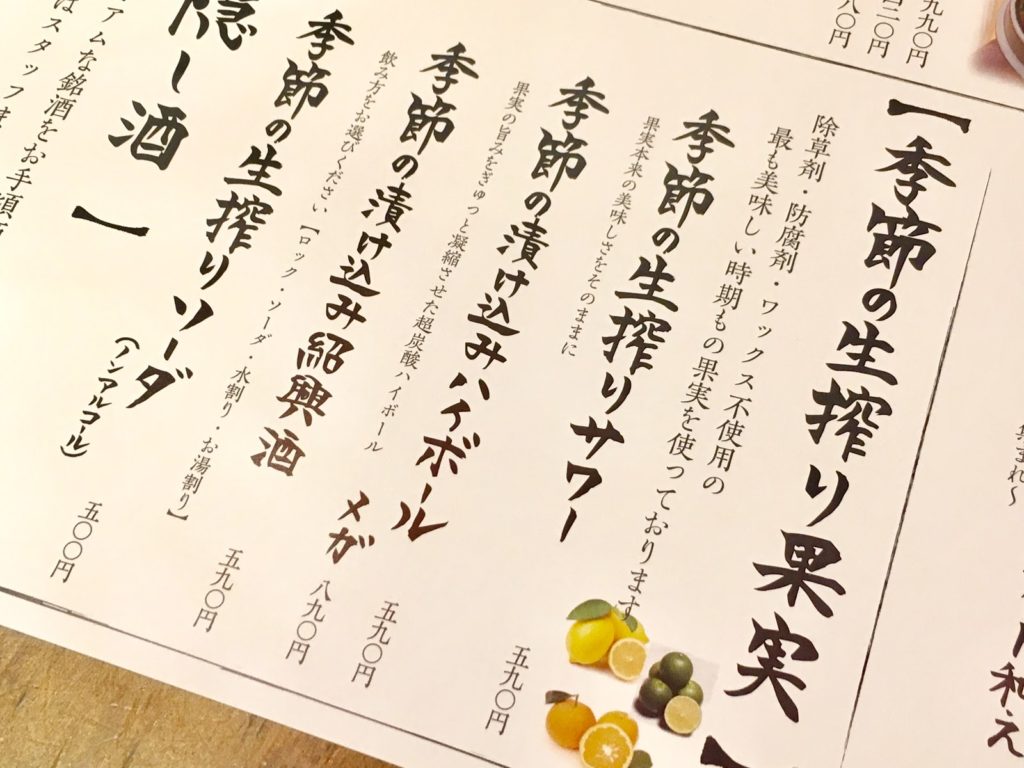 九九〇円
二〇円
八〇円
集まれ〜
和え
【季節の生搾り果実】
除草剤・防腐剤・ワックス不使用の
最も美味しい時期もの果実を使っております
季節の生搾りサワー
五九〇円
果実本来の美味しさをそのままに
季節の漬け込みハイボール
五九〇円
メガ
八九〇円
果実の旨みをぎゅっと凝縮させた超炭酸ハイボール
季節の漬け込み紹興酒
五九〇円
飲み方をお選びください【ロック・ソーダ・水割り・お湯割り】
季節の生搾りソーダ
(ノンアルコール)
五〇〇円
隠し酒】
アムな銘酒をお手頃
はスタッフま